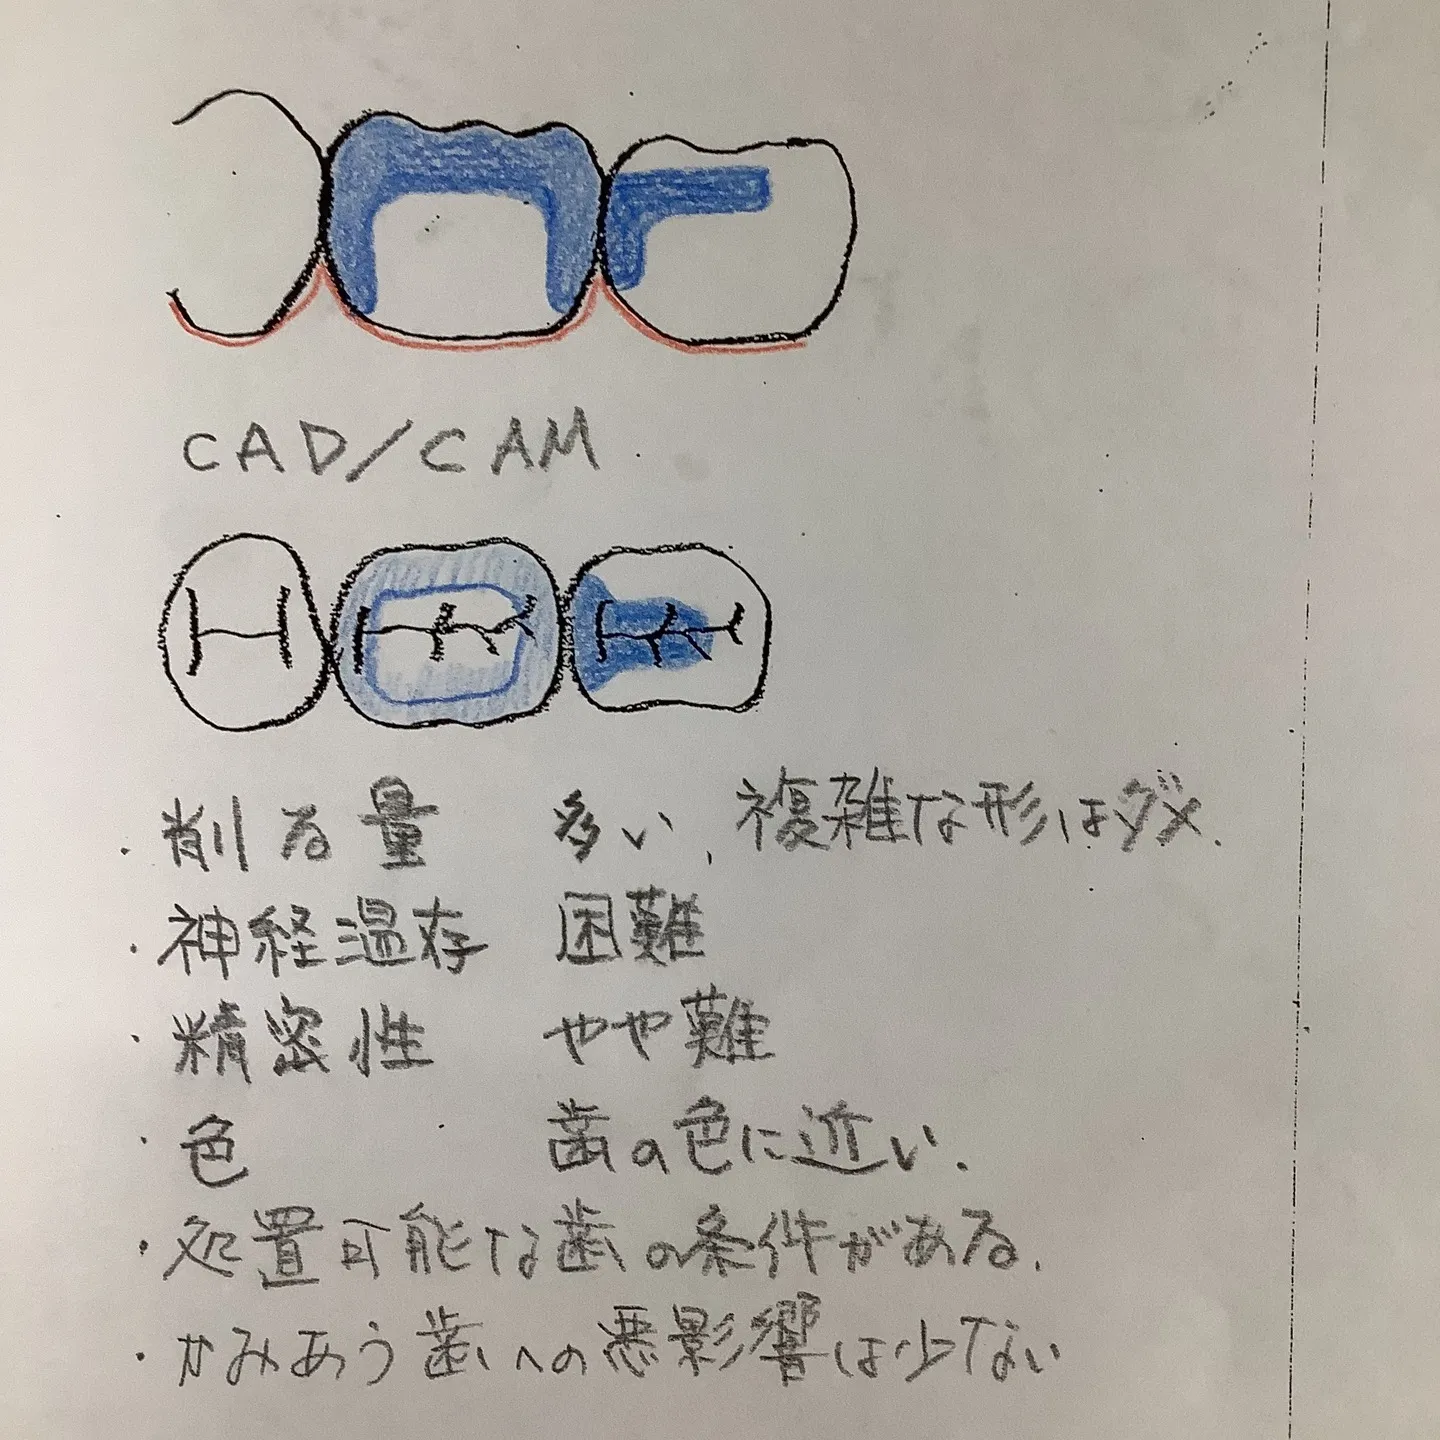 CAD/CAM
・削る量 多い、複雑な形はダメ.
・神経温存 困難
・精密性 やや難
・色 歯の色に近い.
・処置可能な歯の条件がある.
・かみあう歯への悪影響は少ない